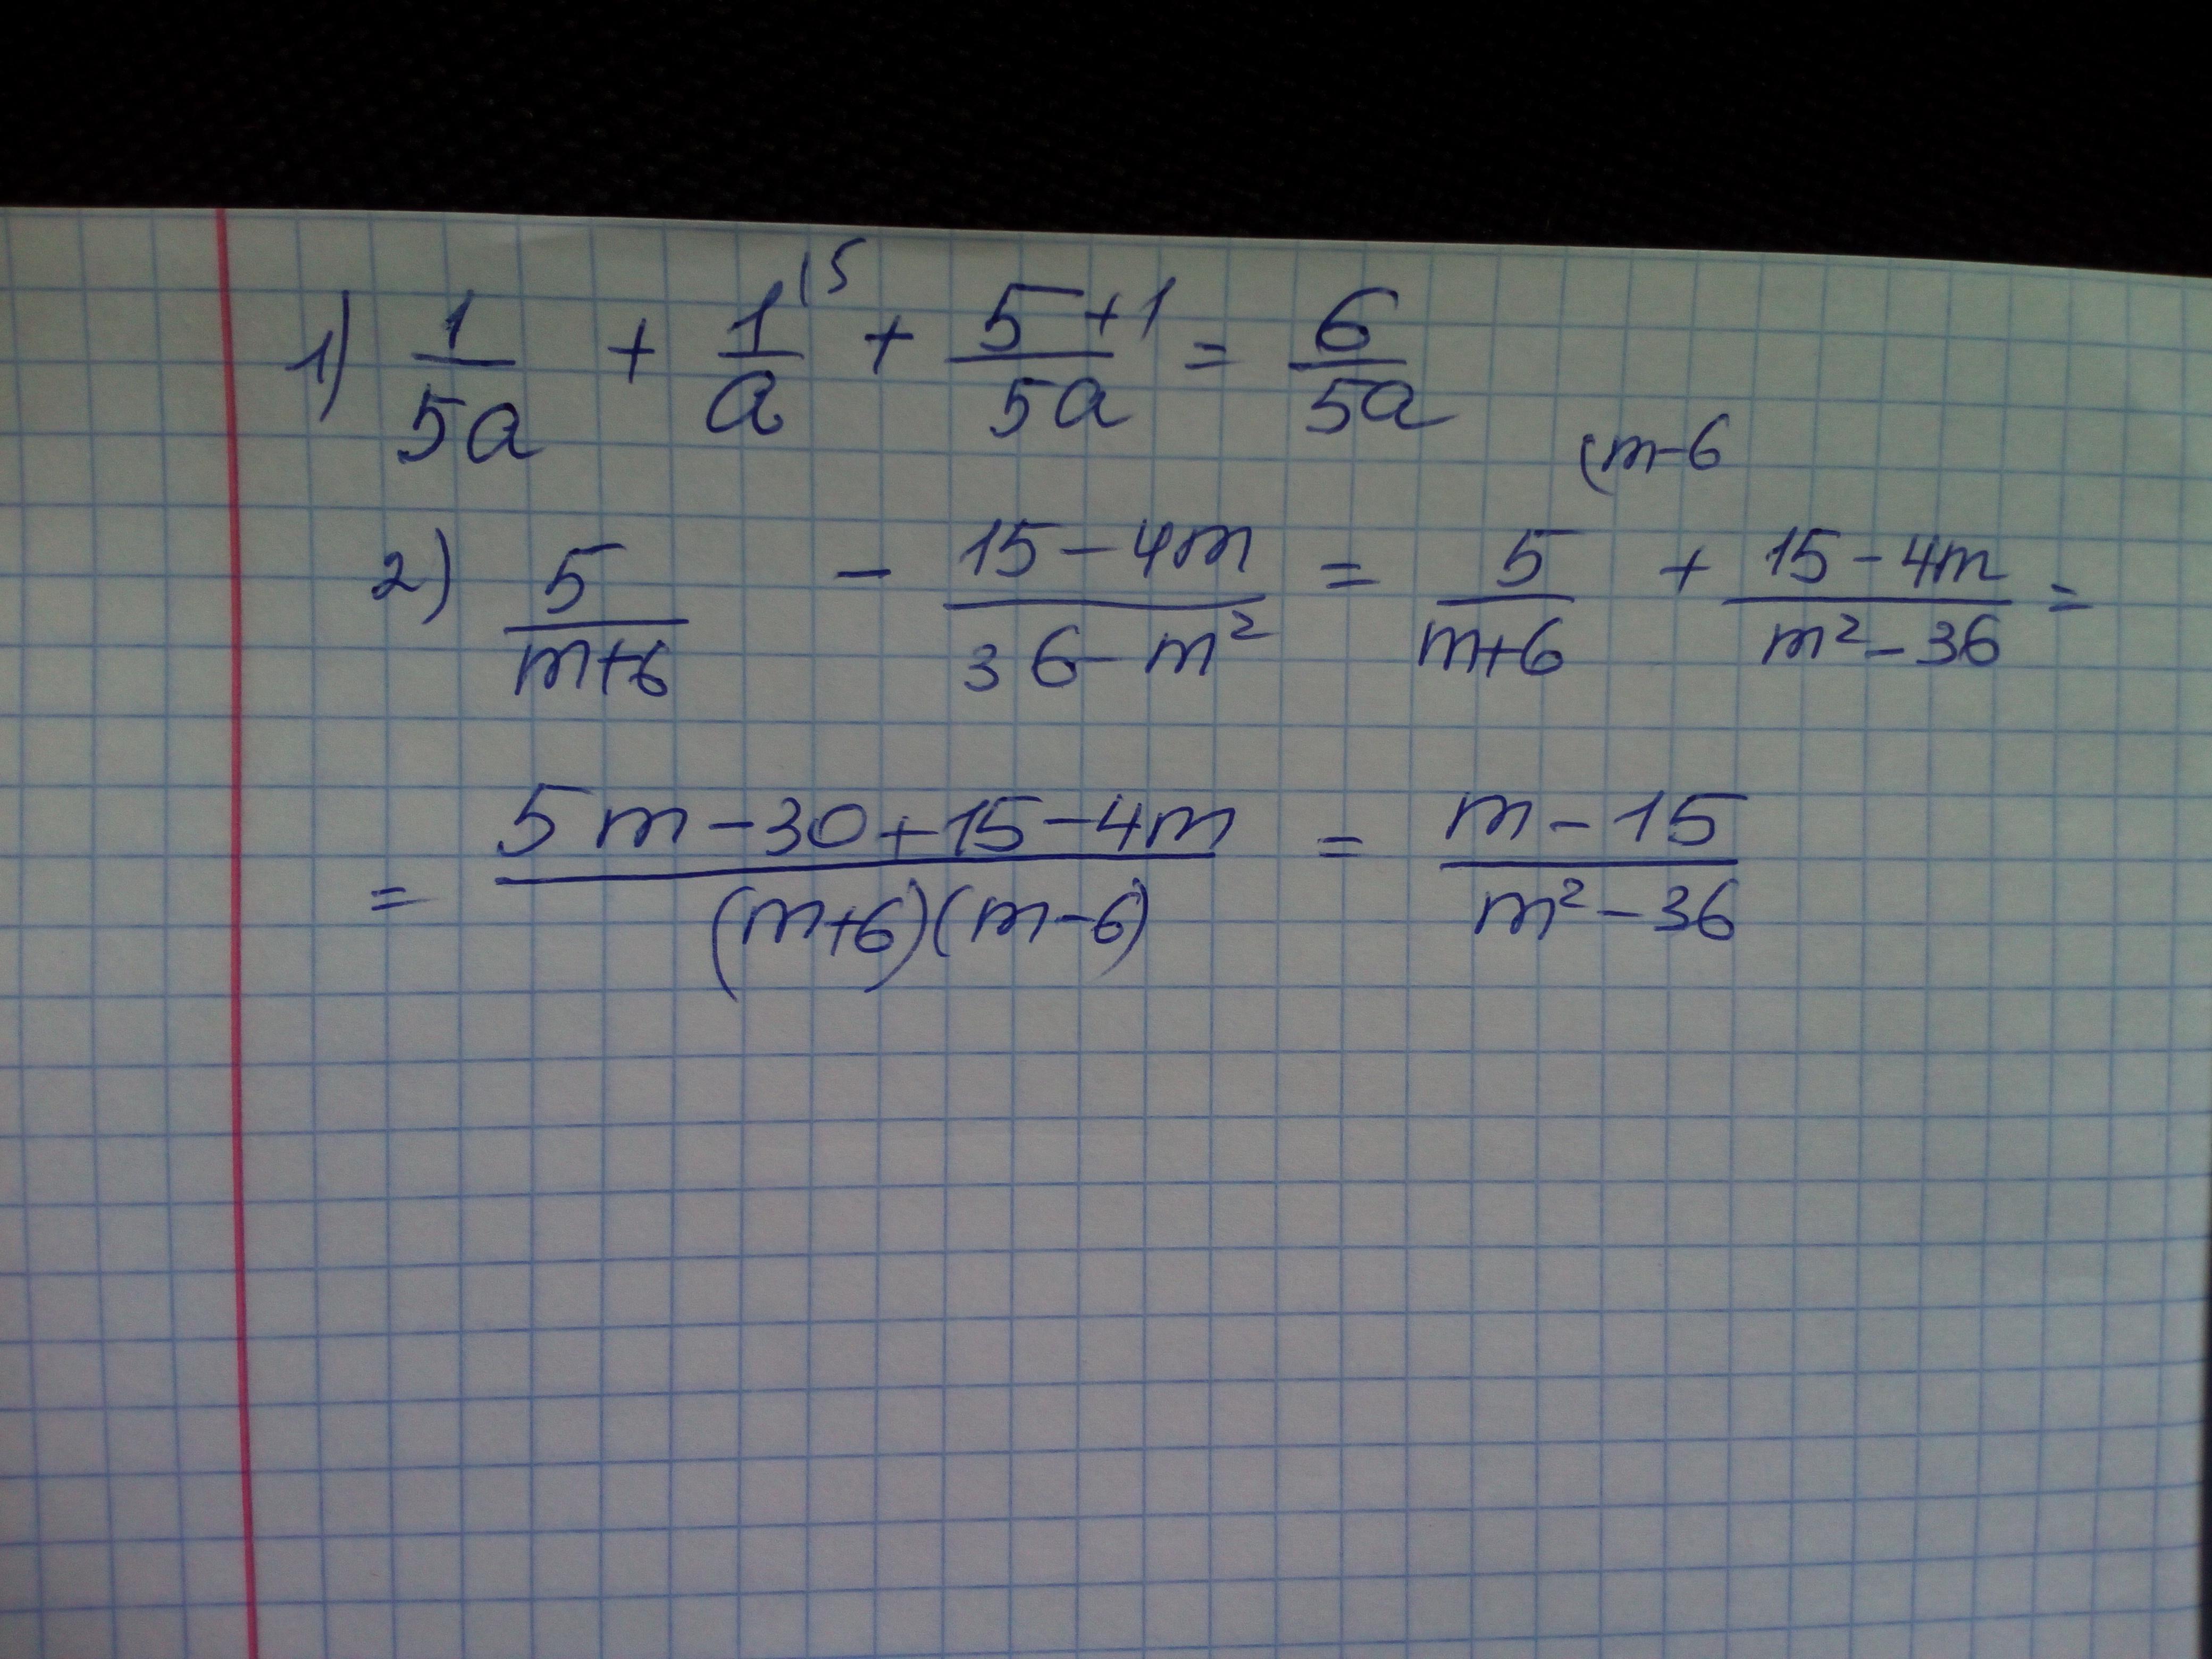 1) 1/5a + 1/a (5 + 5+1/5a = 6/5a
(m-6
2) 5/m+6 - 15-4m/36-m² = 5/m+6 + 15-4m/m²-36 =
= 5m-30+15-4m/(m+6)(m-6) = m-15/m²-36